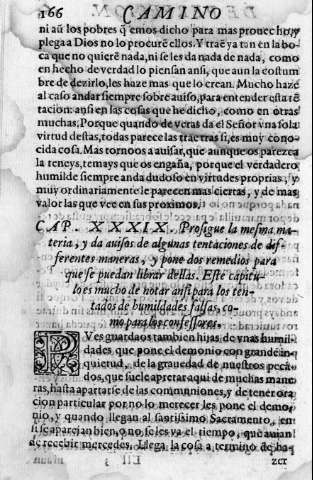 166 CAMINO
ni aũ los pobres q̃ emos dicho para mas prouecho, y
plega a Dios no lo procurẽ ellos. Y traẽ ya tan en la bo-
ca que no quierẽ nada, ni se les da nada de nada, como
en hecho de verdad lo piensan ansi, que aun la costum
bre de dezirlo, les haze mas que lo crean. Mucho hazẽ
al caso andar siempre sobre auiso, para entender esta tẽ
tacion: ansi en las cosas que he dicho, como en otras
muchas: Porque quando de veras da el Señor vna sola
virtud destas, todas parece las trae tras si, es muy cono-
cida cosa. Mas tornoos a auisar, que aunque os parezca
la teneys, temays que os engaña, porque el verdadero
humilde siempre anda dudoso en virtudes proprias, y
muy ordinariamente le parecen mas ciertas, y de mas
valor las que vee en sus proximos.
CAP. XXXIX. Prosigue la mesma ma-
teria, y da auisos de algunas tentaciones de dif-
ferentes maneras, y pone dos remedios para
que se puedan librar dellas. Este capitu-
lo es mucho de notar ansi para los ten-
tados de humildades falsas, co-
mo para los confessores.
PVes guardaos tambien hijas de vnas humil-
dades, que pone el demonio con grande in-
quietud, de la grauedad de nuestros peca-
dos, que suele apretar aqui de muchas mane
ras, hasta apartarse de las comuniones, y de tener ora
cion particular por no lo merecer les pone el demo-
nio, y quando llegan al santissimo Sacramento, en
si se aparejan bien, o no, se les va el tiempo, que auian
de recebir mercedes. Llega la cosa a termino de ha-
zer